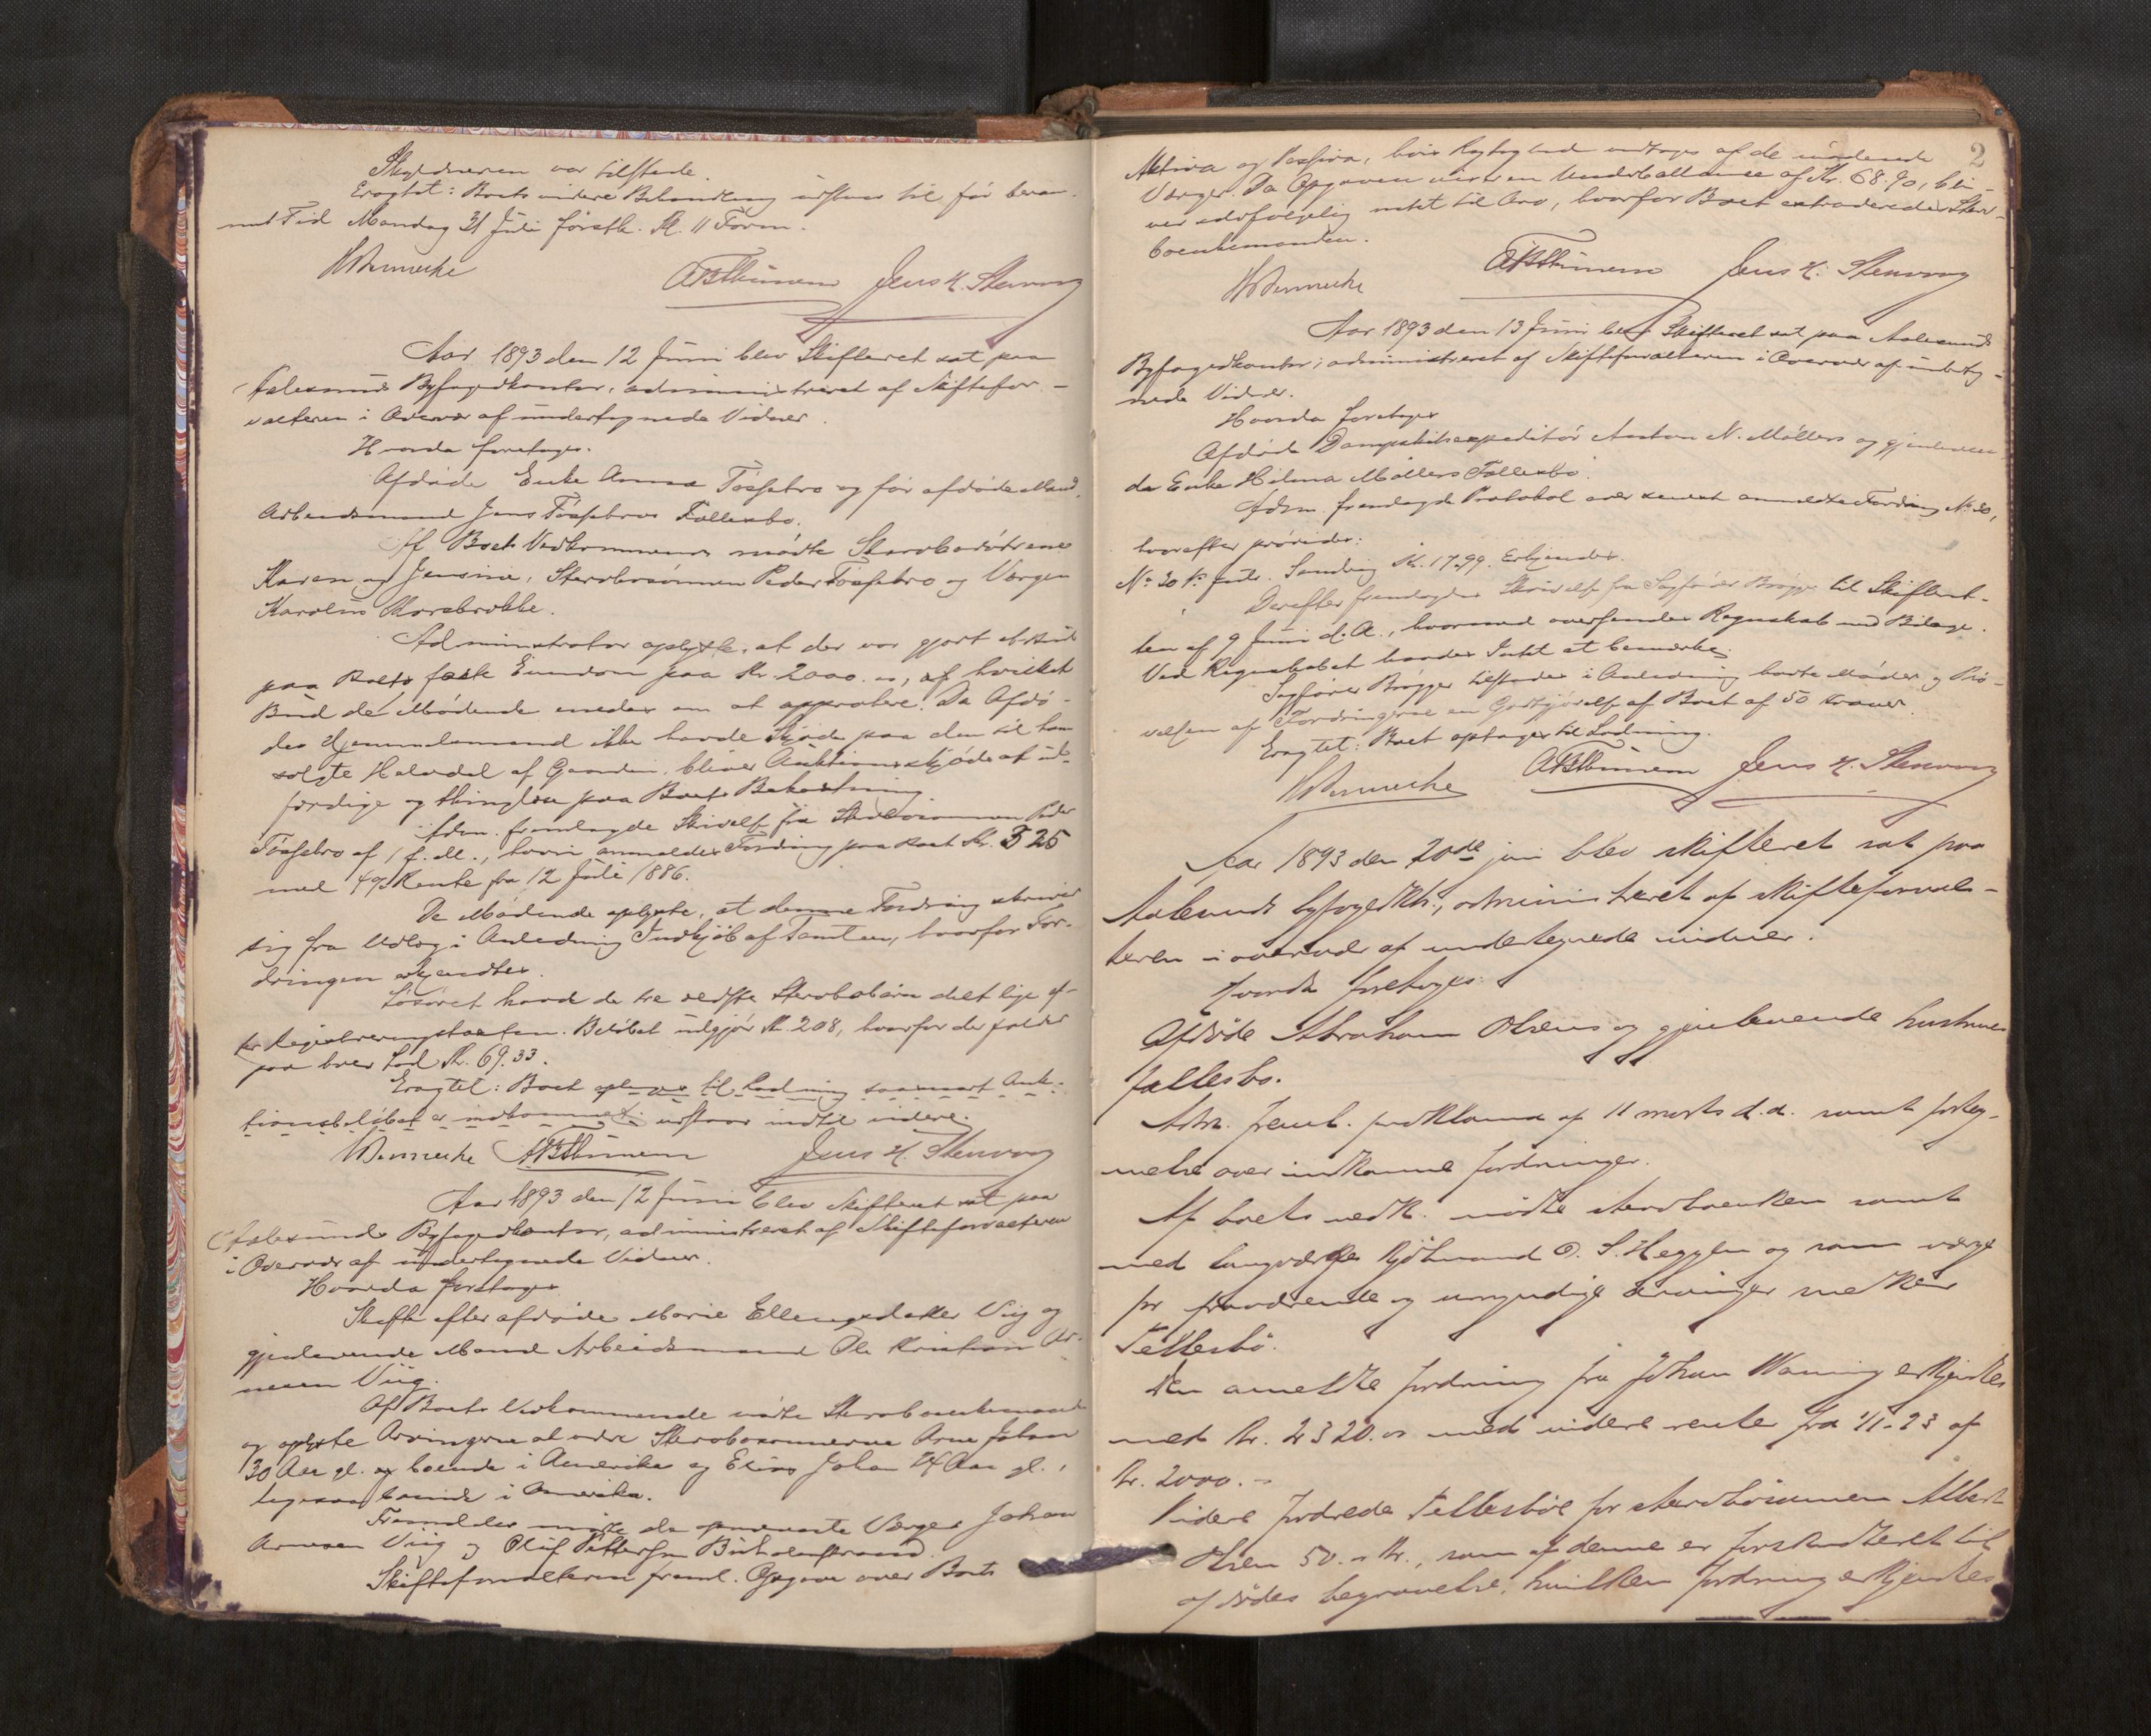 Skyldneren var tilstede.
Eragtet: Boets videre Behandling udstaar til før beram-
met Tid Mandag 31 Juli førstk. Kl. 11 Form.
Jens H. Stenvong
Aar 1893 den 12 Juni blev Skifteret sat paa
Aalesunds Byfogedkontor, administreret af Skiftefor-
valteren i Overvær af undertegnede Vidner.
Hvorda foretoges.
Afdøde Enke Anna Fossebro og før afdøde Mand,
Arbeidsmand Jens Fossebros Fællesbo.
Af Boets Vedkommende mødte Stervbodøtrene
Karen og Jensine, Stervbosønnen Peder Fossebro og Vergen
Karolus
Administrator oplyste, at der var gjort et Bud
paa Boets faste Eiendom paa Kr. 2000.00, af hvilket
Bud de Mødende enedes om at approbere. Da Afdø-
des Hjemmelsmand ikke havde Skjøde paa den til ham
solgte Halvdel af Gaarden, bliver Auktionsskjøde at ud-
færdige og thinglæse paa Boets Bekostning
Adm. fremlagde Skrivelse fra Stervbosønnen Peder
Fossebro af 1 f. M., hvori anmeldes Fordring paa Boet Kr. 525
med 4% Rente fra 12 Juli 1886.
De Mødende oplyste, at denne Fordring skriver
sig fra Udlæg i Anledning Indkjøb af Tomten, hvorfor For-
dringen erkjendtes.
Løsøret havde de tre Stervbobørn delt lige ef-
ter Registreringstaxten. Beløbet udgjør Kr. 208, hvorfor der falder
paa hver Lod Kr. 69.33.
Eragtet: Boet optages til Lodning saasnart Auk-
tionsbeløbet er indkommet. udstaar indtil videre.
Jens H. Stenvong
Aar 1893 den 12 Juni blev Skifteret sat paa
Aalesunds Byfogedkontor, administreret af Skifteforvalteren
i Overvær af undertegnede Vidner.
Hvorda foretoges
Skifte efter afdøde Marie Ellengsdatter Viig og
gjenlevende Mand Arbeidsmand Ole Kristian Ar-
nesen Viig.
Af Boets Vedkommende mødte Stervboenkemanden
og oplyste Arvingerne at være Stervbosønnerne Arne Johan
30 Aar gl. og boende i Amerika og Elias Johan 24 Aar gl.,
ligesaa boende i Amerika.
Fremdeles mødte de opnævnte Verger Johan
Arnesen Viig og Oluf Pettersen
Skifteforvalteren freml. Opgave over Boets
2
Aktiva og Passiva, hvis Rigtighed vedtoges af de mødende
Verger. Da Opgaven viser en Underballance af Kr. 68.90, bli-
ver selvfølgelig intet til Arv, hvorfor Boet extraderedes Sterv-
boenkemanden.
Jens H. Stenvong
Aar 1893 den 13 Juni blev Skifteret sat paa Aalesunds
Byfogedkontor, administreret af Skifteforvalteren i Overvær af underteg-
nede Vidner.
Hvorda foretoges
Afdøde Dampskibsexpeditør Anton N. Møllers og gjenleven-
de Enke Hilma Møllers Fællesbo.
Adm. fremlagde Protokol over senest anmeldte Fordring No 30,
hvorefter prøvedes:
No 30 Kr. 17.99. Erkjendes.
Derefter fremlagdes Skrivelse fra Sagfører Brøgger til Skifteret-
ten af 9 Juni d. A., hvormed oversendes Regnskab med Bilage.
Ved Regnskabet havdes Intet at bemærke.
Sagfører Brøgger tilstodes i Anledning havte Møder og Prø-
velsen af Fordringerne en Godtgjørelse af Boet af 50 Kroner.
Eragtet: Boet optages til Lodning.
Jens H. Stenvong
Aar 1893 den 20de juni blev skifteret sat paa
Aalesunds byfogedktr., administreret af skifteforval-
teren i overvær af undertegnede vidner.
Hvorda foretoges:
Afdøde Abraham Olsens og gjenlevende hustrues
fællesbo.
Adm. freml. proklama af 11 marts d.a. samt forteg-
nelse over indkomne fordringer.
Af boets vedk. mødte stervboenken samt
med laugværge kjøbmand O. S. Heggen og som værge
for fraværende og umyndige arvinger
Tellesbø.
Den anmeldte fordring fra Johan Waning erkjendtes
med Kr. 2320.00 med videre renter fra af
Kr. 2000.-
Videre fordrede Tellesbø for stervbosønnen Albert
Olsen 50.- Kr., som af denne er forskudteret til
afdødes begravelse, hvilken fordring erkjendtes